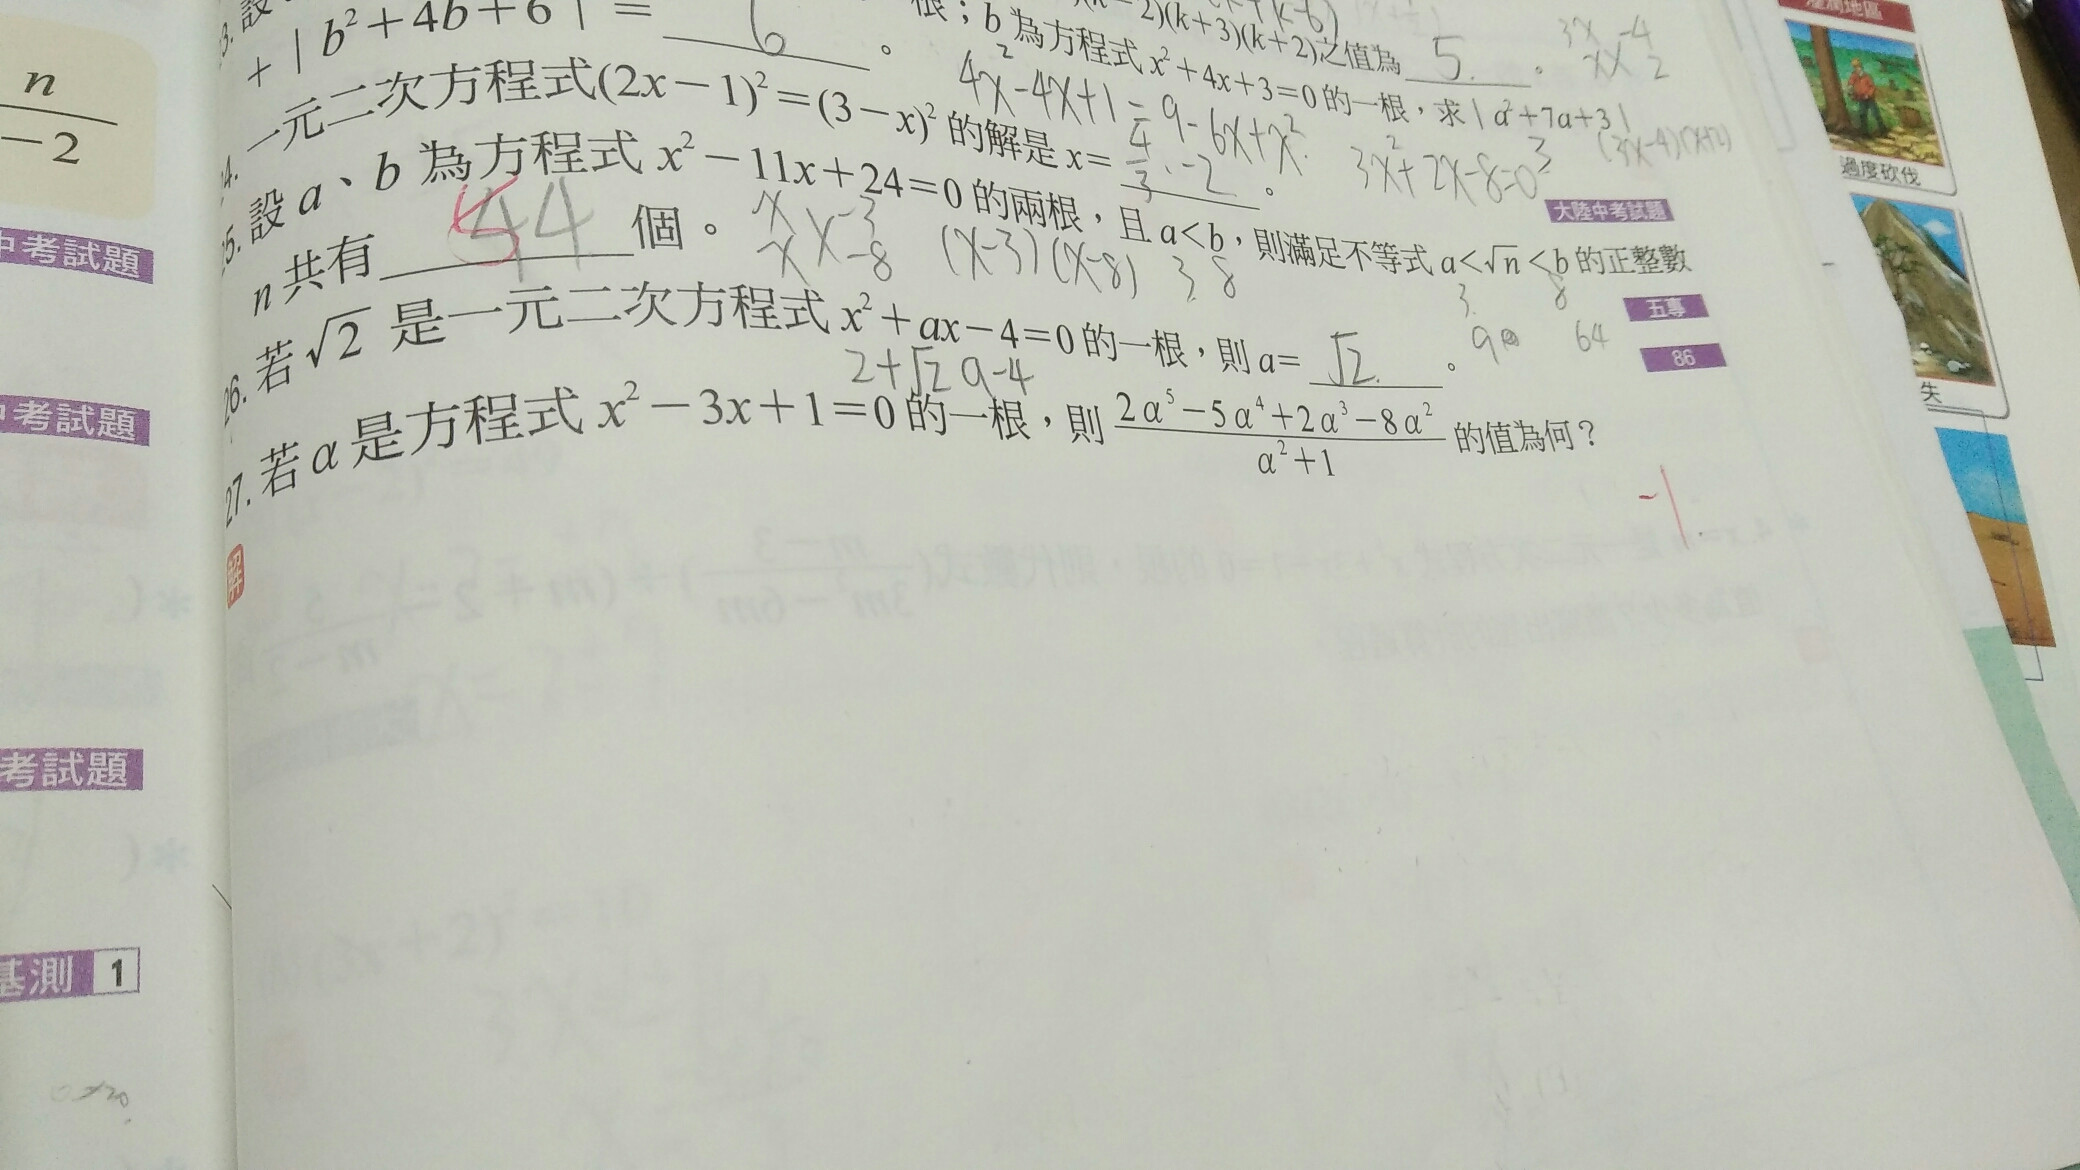 n
-2
中考試題
中考試題
考試題
基測 1
(k-2)(k+3)(k+2)之值為 5.。
根；b為方程式 x²+4x+3=0的一根，求|a²+7a+3|
+|b²+4b+6|= 6 。
一元二次方程式(2x-1)²=(3-x)²的解是x= 4/3、-2 。
4x²-4x+1=9-6x+x²
3x²+2x-8=0
(3x-4)(x+2)
3x -4
x 2
大陸中考試題
25. 設a、b為方程式 x²-11x+24=0的兩根，且a<b，則滿足不等式a<√n<b的正整數
n共有 54 4 個。
x -3
x -8
(x-3)(x-8) 3. 8
3. 8
9 64
五專
26. 若√2是一元二次方程式 x²+ax-4=0的一根，則a= √2. 。
2+√2 a-4
86
27. 若α是方程式 x²-3x+1=0的一根，則 (2α⁵-5α⁴+2α³-8α²)/(α²+1) 的值為何？
-1.
解
過度砍伐
失